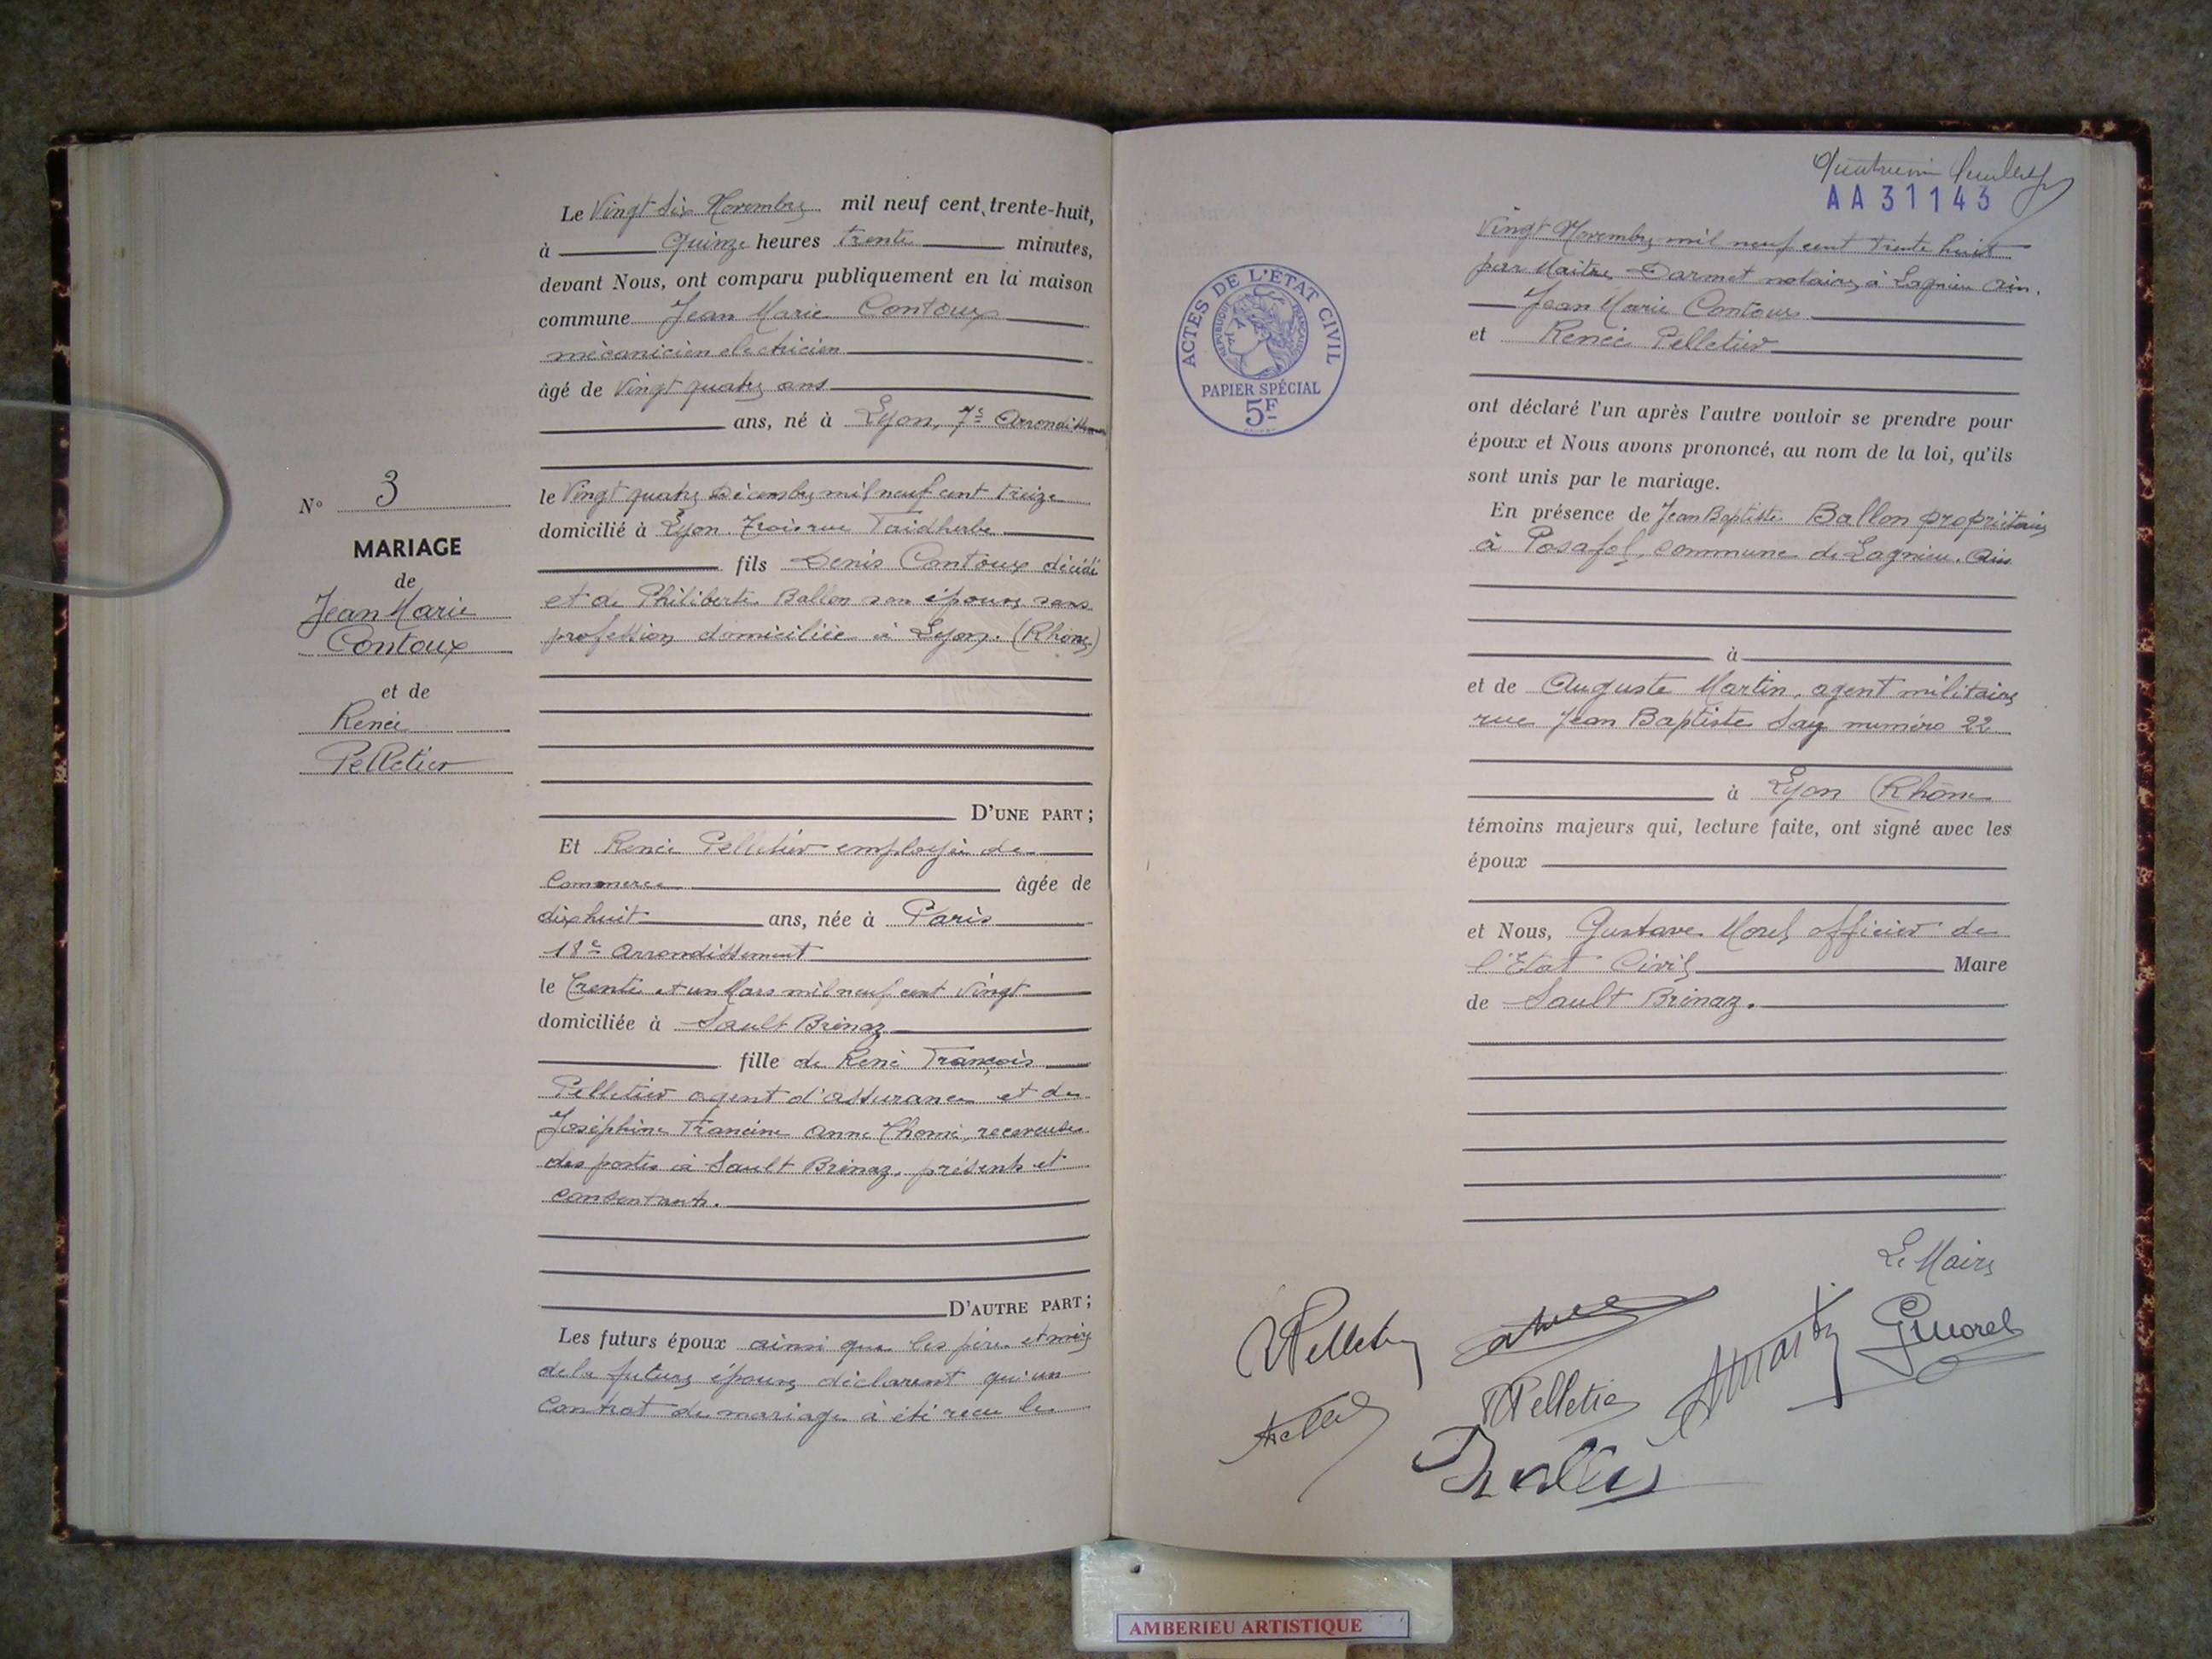 Le Vingt Six Novembre mil neuf cent trente-huit,
à Quinze heures trente minutes,
devant Nous, ont comparu publiquement en la maison
commune Jean Marie Contoux
mécanicien electricien
âgé de Vingt quatre ans
ans, né à Lyon, 7e Arrondissement
le Vingt quatre Décembre mil neuf cent treize
domicilié à Lyon Trois rue Faidherbe
fils Denis Contoux décédé
et de Philiberte Ballon son épouse sans
profession domiciliée à Lyon. (Rhône)
D'UNE PART;
Et Renée Pelletier employée de
Commerce âgée de
dix huit ans, née à Paris
18e Arrondissement
le trente et un Mars mil neuf cent Vingt
domiciliée à Sault Brénaz
fille de René François
Pelletier agent d'assurance et de
Joséphine Francine Anne Thomé, receveuse
des postes à Sault Brénaz, présents et
consentants.
D'AUTRE PART;
Les futurs époux ainsi que les père et mère
de la future épouse déclarent qu'un
contrat de mariage à été recu le
N° 3
MARIAGE
de
Jean Marie
Contoux
et de
Renée
Pelletier
AA31143
Vingt Novembre mil neuf cent trente huit
par Maitre Darmet notaire à Lagnieu Ain.
Jean Marie Contoux
et Renée Pelletier
ont déclaré l'un après l'autre vouloir se prendre pour
époux et Nous avons prononcé, au nom de la loi, qu'ils
sont unis par le mariage.
En présence de Jean Baptiste Ballon propriétaire
à Posafol, commune de Lagnieu. Ain
à
et de Auguste Martin, agent militaire
rue Jean Baptiste Say numéro 22
à Lyon (Rhône
témoins majeurs qui, lecture faite, ont signé avec les
époux
et Nous, Gustave Morel officier de
l'Etat Civil Maire
de Sault Brénaz.
ACTES DE L'ETAT CIVIL
REPUBLIQUE FRANÇAISE
PAPIER SPÉCIAL
5F
Le Maire
RPelletier
GMorel
Pelletier
AMartin
AMBERIEU ARTISTIQUE